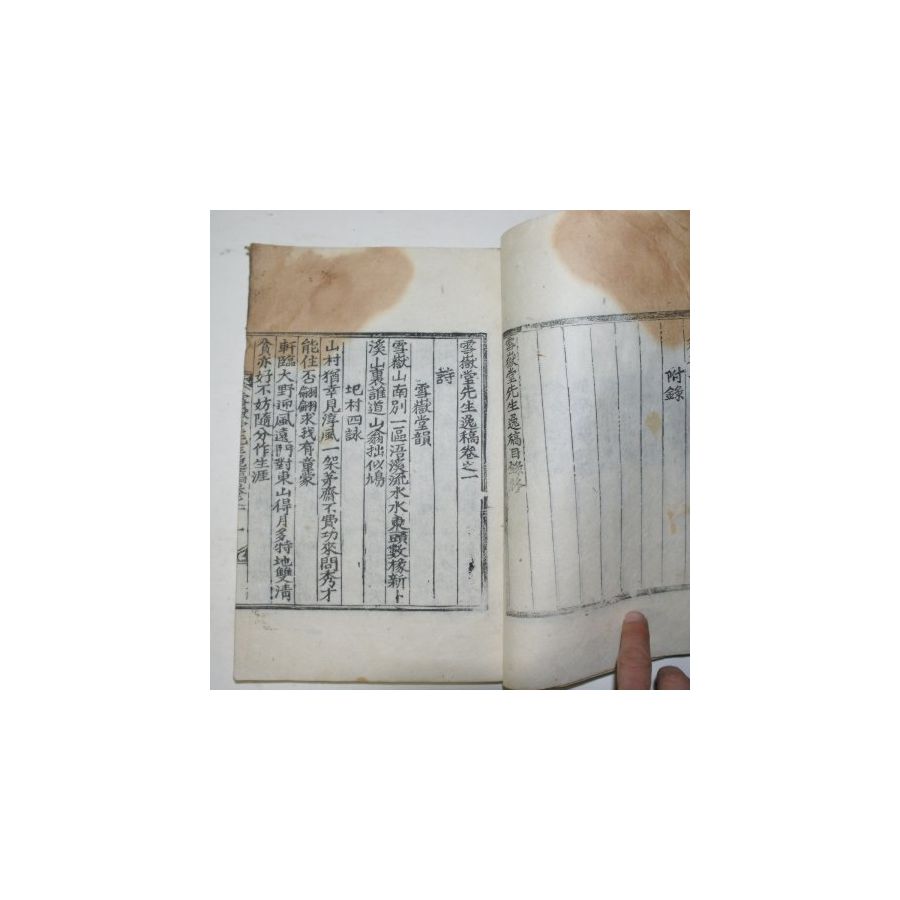 附錄
雪嶽堂先生逸稿目錄終
雪嶽堂先生逸稿卷之一
詩
雪嶽堂韻
雪嶽山南別一區浯溪流水水東頭數椽新卜
溪山裏誰道山翁拙似鳩
圯村四詠
山村猶幸見淳風一架茅齋不費功來問秀才
能住否翩翩求我有童蒙
軒臨大野迎風遠門對東山得月多特地雙清
貧亦好不妨隨分作生涯